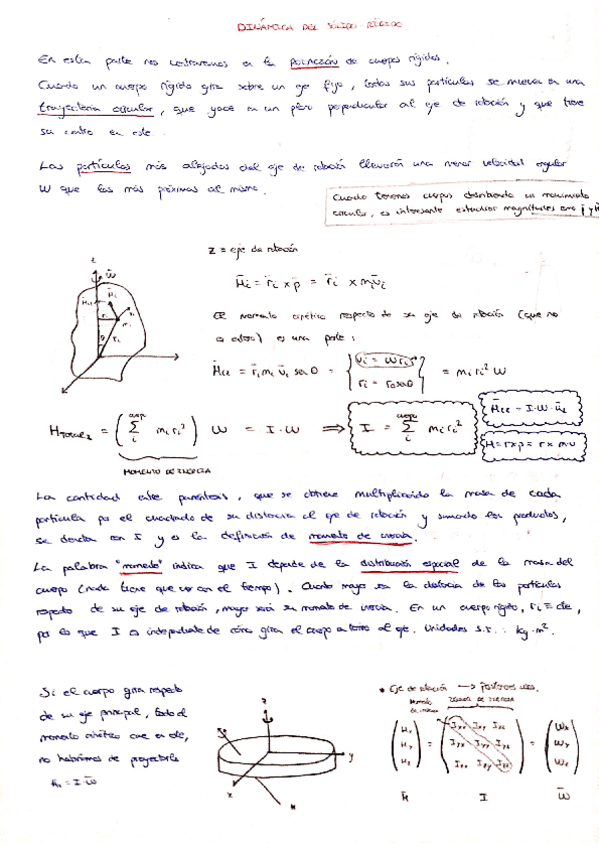 DINÁMICA DEL SÓLIDO RÍGIDO
En esta parte nos centraremos en la ROTACIÓN de cuerpos rígidos.
Cuando un cuerpo rígido gira sobre un eje fijo, todas sus partículas se mueven en una
trayectoria circular, que yace en un plano perpendicular al eje de rotación y que tiene
su centro en este.
Las partículas más alejadas del eje de rotación llevarán una menor velocidad angular
W que las más próximas al mismo.
Cuando tenemos cuerpos describiendo un movimiento
circular, es interesante estudiar magnitudes como
Z = eje de rotación
H̄i = r̄i × p̄ = r̄i × mi v̄i
El momento cinético respecto de su eje de rotación (que no
es una parte:
H̄iz = r̄i mi v̄i sen θ = { vi = w ri } = mi ri² W
HTotal z = ( Σ mi ri² ) W = I·W ⟹ I = Σ mi ri²
MOMENTO DE INERCIA
H = r×p = r × mv
La cantidad entre paréntesis, que se obtiene multiplicando la masa de cada
partícula por el cuadrado de su distancia al eje de rotación y sumando los productos,
se denota con I y es la definición de momento de inercia.
La palabra "momento" indica que I depende de la distribución espacial de la masa del
cuerpo (nada tiene que ver con el tiempo). Cuanto mayor sea la distancia de las partículas
respecto de su eje de rotación, mayor será su momento de inercia. En un cuerpo rígido, ri = cte,
por lo que I es independiente de cómo gira el cuerpo en torno al eje. Unidades S.I. : kg·m².
Si el cuerpo gira respecto
de su eje principal, todo el
momento cinético cae en ese,
no habríamos de proyectarlo
H̄ = I·W̄
z
y
x
H
Eje de rotación →
TENSOR DE INERCIA
( Hx Hy Hz ) = ( Ixx Ixy Ixz Iyx Iyy Iyz Izx Izy Izz ) = ( Wx Wy Wz )
H̄ I W̄